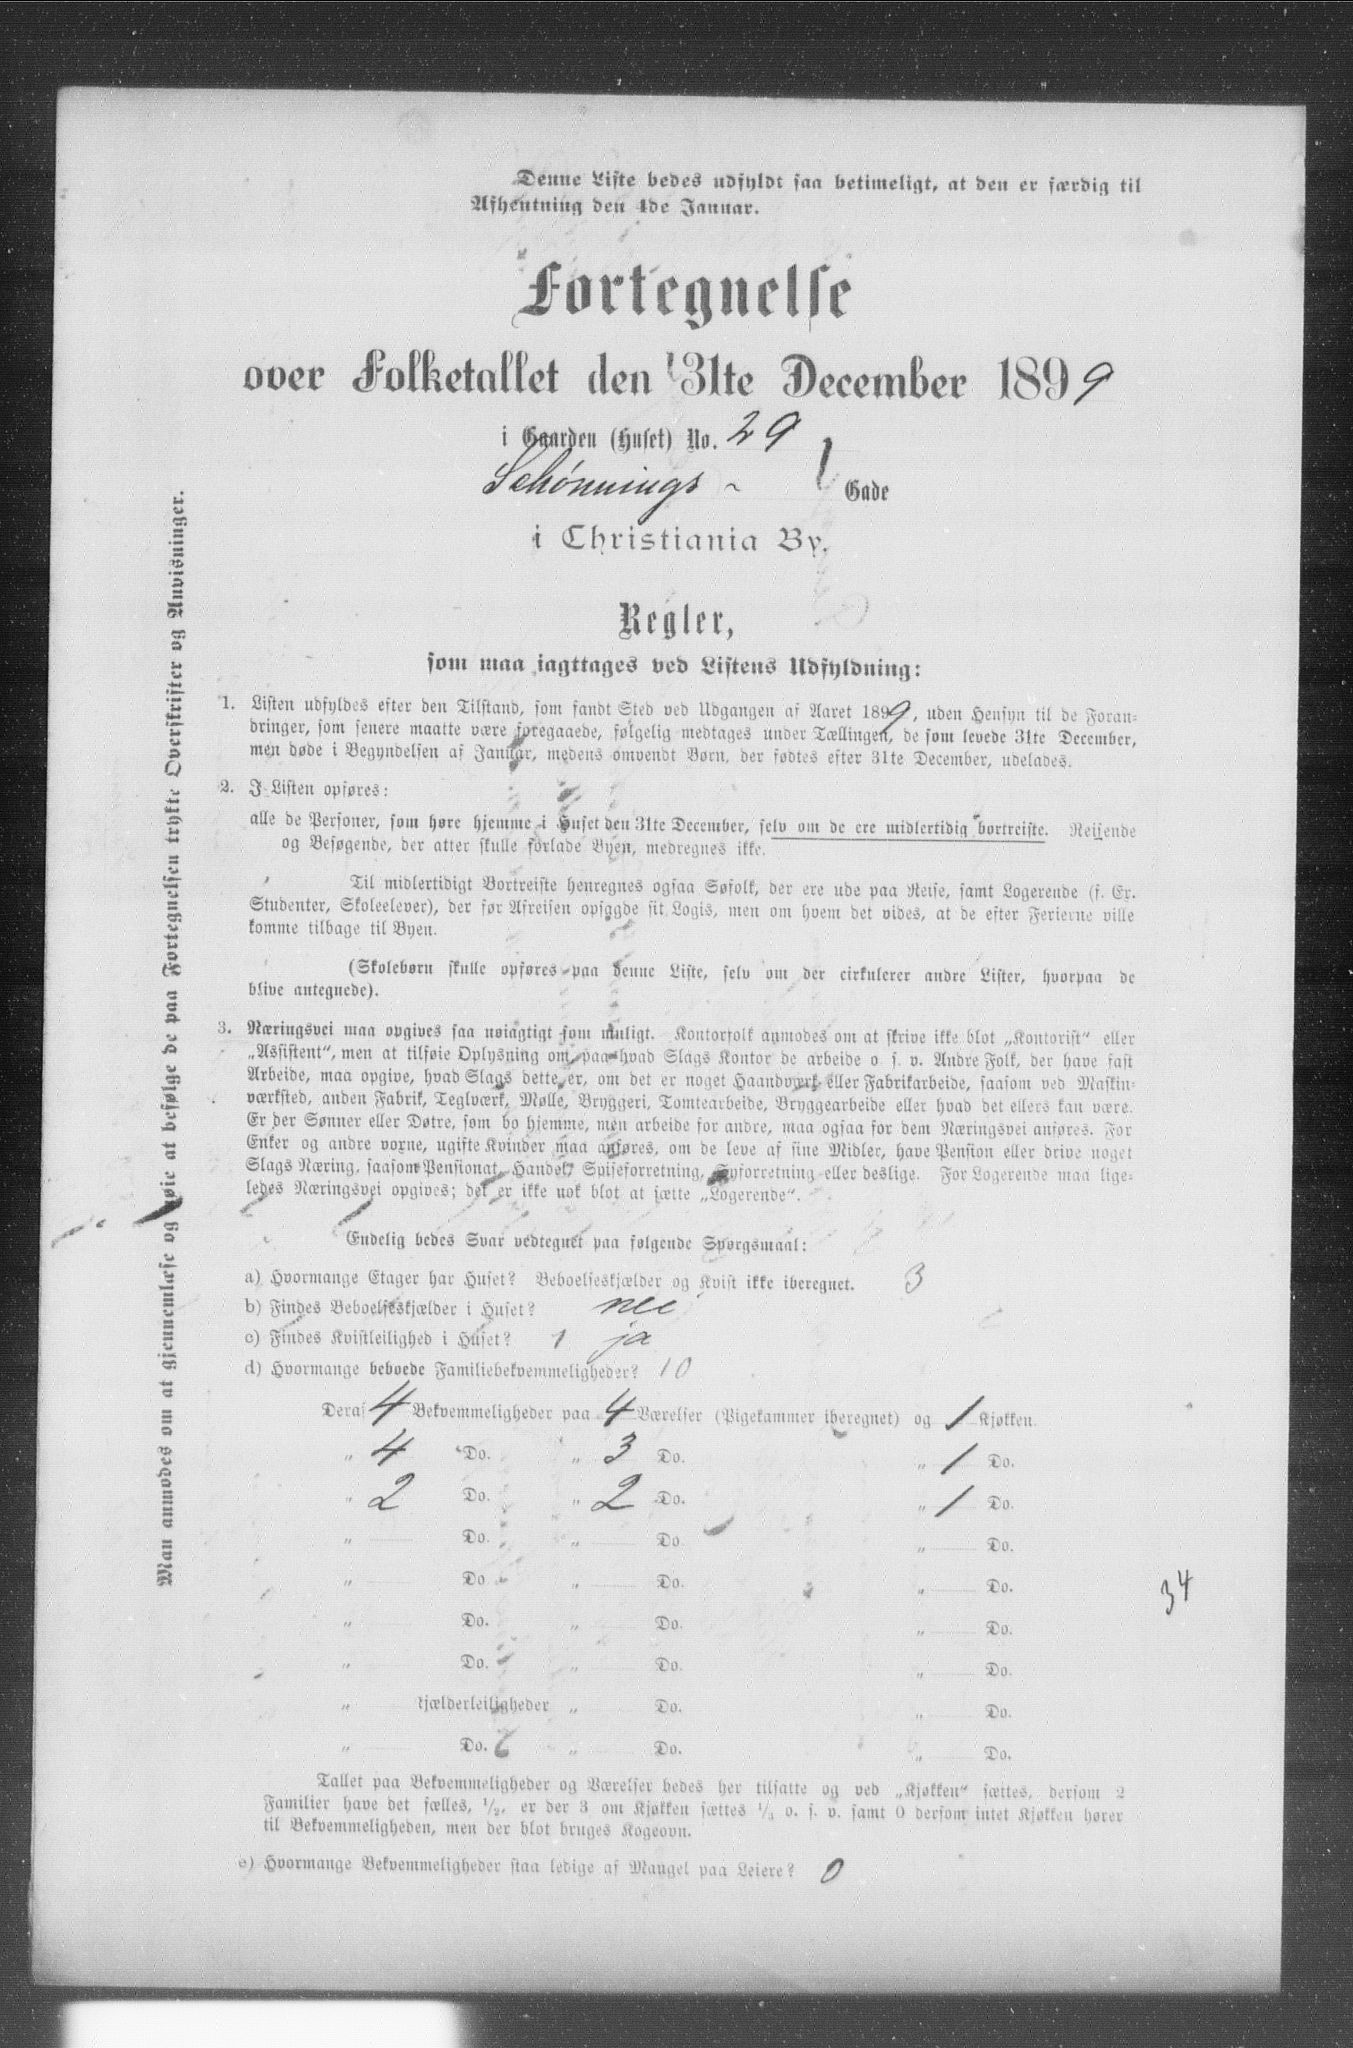 Denne Liste bedes udfyldt saa betimeligt, at den er færdig til
Afhentning den 4de Januar.
Fortegnelse
over Folketallet den 31te December 1899
i Gaarden (Huset) No. 29
Schønnings - Gade
i Christiania By.
Regler,
som maa iagttages ved Listens Udfyldning:
1. Listen udfyldes efter den Tilstand, som fandt Sted ved Udgangen af Aaret 1899, uden Hensyn til de Foran-
dringer, som senere maatte være foregaaede, følgelig medtages under Tællingen, de som levede 31te December,
men døde i Begyndelsen af Januar, medens omvendt Børn, der fødtes efter 31te December, udelades.
2. I Listen opføres:
alle de Personer, som høre hjemme i Huset den 31te December, selv om de ere midlertidig bortreiste. Reisende
og Besøgende, der atter skulle forlade Byen, medregnes ikke.
Til midlertidigt Bortreiste henregnes ogsaa Søfolk, der ere ude paa Reise, samt Logerende (f. Ex.
Studenter, Skoleelever), der før Afreisen opsagde sit Logis, men om hvem det vides, at de efter Ferierne ville
komme tilbage til Byen.
(Skolebørn skulle opføres paa denne Liste, selv om der cirkulerer andre Lister, hvorpaa de
blive antegnede).
3. Næringsvei maa opgives saa nøiagtigt som muligt. Kontorfolk anmodes om at skrive ikke blot „Kontorist“ eller
„Assistent“, men at tilføie Oplysning om, paa hvad Slags Kontor de arbeide o. s. v. Andre Folk, der have fast
Arbeide, maa opgive, hvad Slags dette er, om det er noget Haandværk eller Fabrikarbeide, saasom ved Maskin-
værksted, anden Fabrik, Teglværk, Mølle, Bryggeri, Tomtearbeide, Bryggearbeide eller hvad det ellers kan være.
Er der Sønner eller Døtre, som bo hjemme, men arbeide for andre, maa ogsaa for dem Næringsvei anføres. For
Enker og andre voxne, ugifte Kvinder maa anføres, om de leve af sine Midler, have Pension eller drive noget
Slags Næring, saasom Pensionat, Handel, Spiseforretning, Syforretning eller deslige. For Logerende maa lige-
ledes Næringsvei opgives; det er ikke nok blot at sætte „Logerende“.
Endelig bedes Svar vedtegnet paa følgende Spørgsmaal:
a) Hvormange Etager har Huset? Beboelseskjælder og Kvist ikke iberegnet. 3
b) Findes Beboelseskjælder i Huset? nei
c) Findes Kvistleilighed i Huset? 1 ja
d) Hvormange beboede Familiebekvemmeligheder? 10
Deraf 4 Bekvemmeligheder paa 4 Værelser (Pigekammer iberegnet) og 1 Kjøkken.
„ 4 Do. „ 3 Do. „ 1 Do.
„ 2 Do. „ 2 Do. „ 1 Do.
„ Do. „ Do. „ Do.
„ Do „ Do. „ Do.
„ Do. „ Do. „ Do.
„ Do. „ Do. „ Do.
„ Kjælderleiligheder „ Do. „ Do.
„ Do. „ Do. „ Do.
34
Tallet paa Bekvemmeligheder og Værelser bedes her tilsatte og ved „Kjøkken“ sættes, dersom 2
Familier have det fælles, 1/2, er der 3 om Kjøkken sættes 1/3 o. s. v. samt 0 dersom intet Kjøkken hører
til Bekvemmeligheden, men der blot bruges Kogeovn.
e) Hvormange Bekvemmeligheder staa ledige af Mangel paa Leiere? 0
Man anmodes om at gjennemlæse og nøie at befølge de paa Fortegnelsen trykte Overskrifter og Anvisninger.